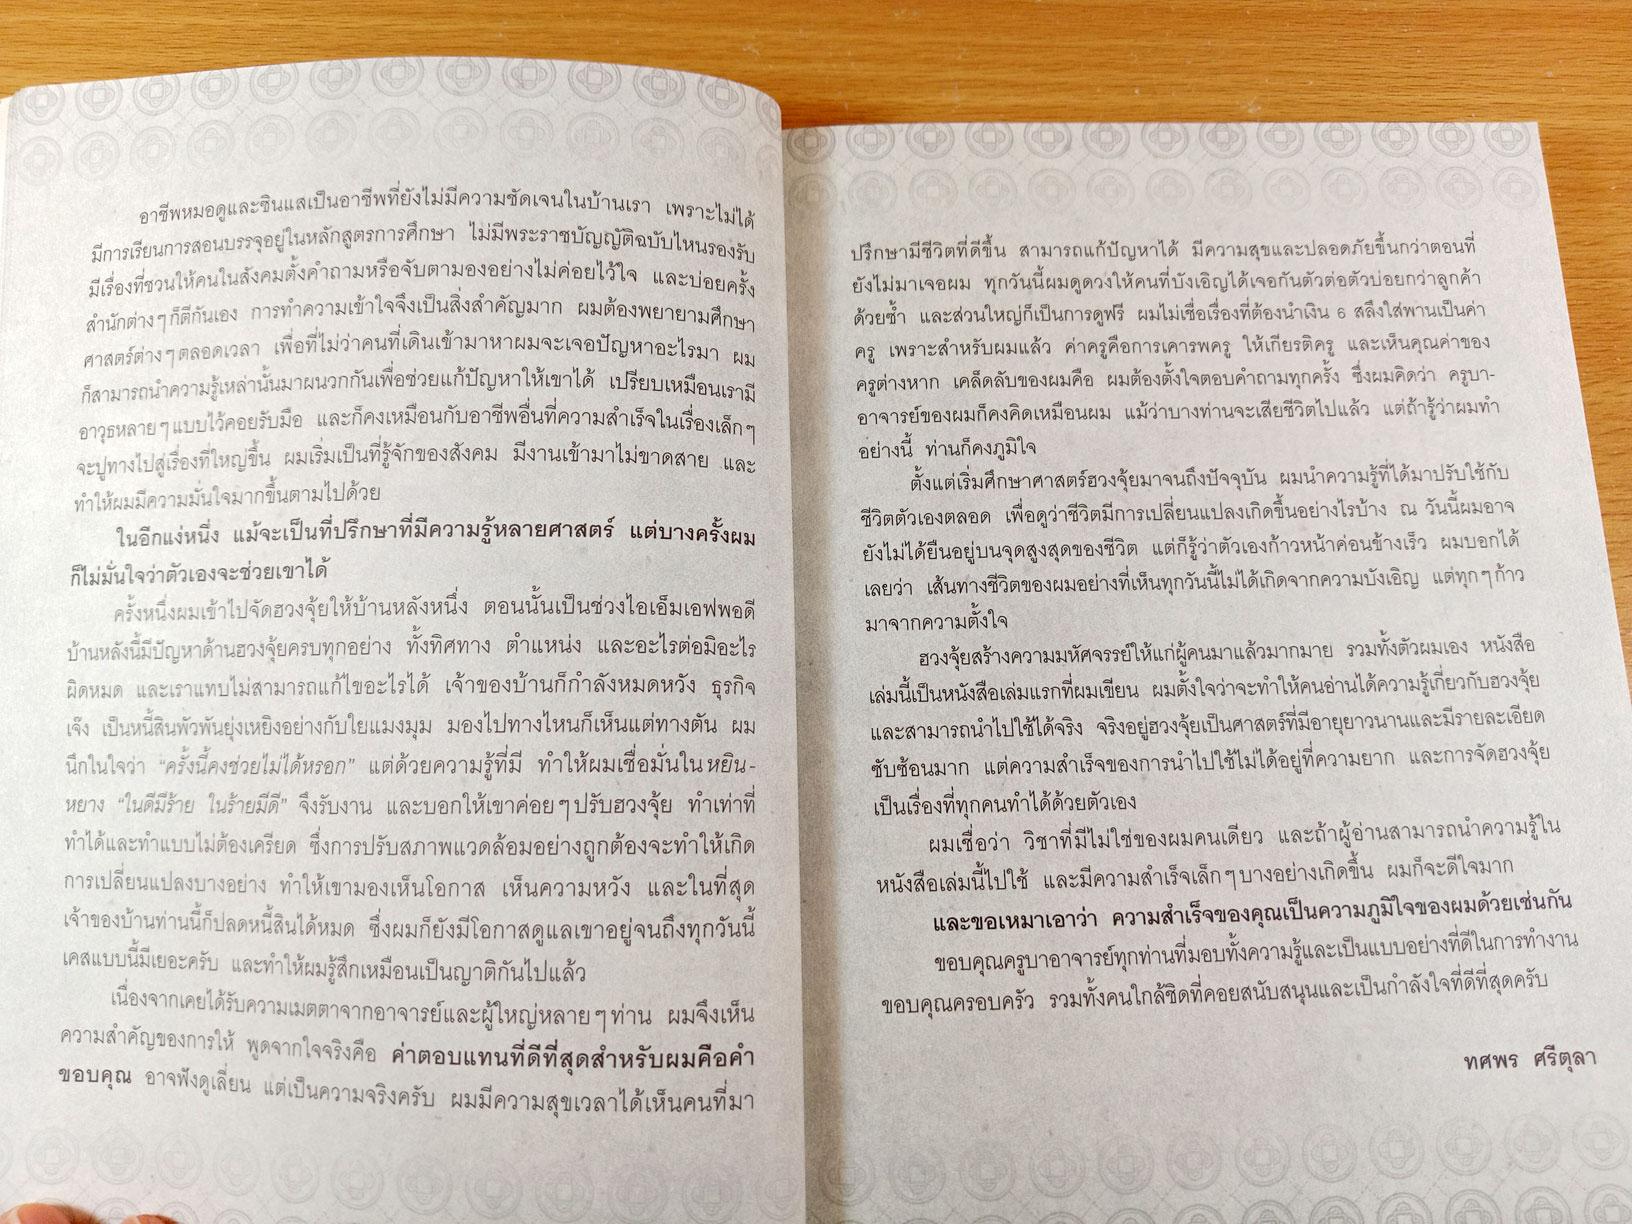 อาชีพหมอดูและซินแสเป็นอาชีพที่ยังไม่มีความชัดเจนในบ้านเรา เพราะไม่ได้
มีการเรียนการสอนบรรจุอยู่ในหลักสูตรการศึกษา ไม่มีพระราชบัญญัติฉบับไหนรองรับ
มีเรื่องที่ชวนให้คนในสังคมตั้งคำถามหรือจับตามองอย่างไม่ค่อยไว้ใจ และบ่อยครั้ง
สำนักต่างๆ ก็ตีกันเอง การทำความเข้าใจจึงเป็นสิ่งสำคัญมาก ผมต้องพยายามศึกษา
ศาสตร์ต่างๆ ตลอดเวลา เพื่อที่ไม่ว่าคนที่เดินเข้ามาหาผมจะเจอปัญหาอะไรมา ผม
ก็สามารถนำความรู้เหล่านั้นมาผนวกกันเพื่อช่วยแก้ปัญหาให้เขาได้ เปรียบเหมือนเรามี
อาวุธหลายๆ แบบไว้คอยรับมือ และก็คงเหมือนกับอาชีพอื่นที่ความสำเร็จในเรื่องเล็กๆ
จะปูทางไปสู่เรื่องที่ใหญ่ขึ้น ผมเริ่มเป็นที่รู้จักของสังคม มีงานเข้ามาไม่ขาดสาย และ
ทำให้ผมมีความมั่นใจมากขึ้นตามไปด้วย
ในอีกแง่หนึ่ง แม้จะเป็นที่ปรึกษาที่มีความรู้หลายศาสตร์ แต่บางครั้งผม
ก็ไม่มั่นใจว่าตัวเองจะช่วยเขาได้
ครั้งหนึ่งผมเข้าไปจัดฮวงจุ้ยให้บ้านหลังหนึ่ง ตอนนั้นเป็นช่วงไอเอ็มเอฟพอดี
บ้านหลังนี้มีปัญหาด้านฮวงจุ้ยครบทุกอย่าง ทั้งทิศทาง ตำแหน่ง และอะไรต่อมิอะไร
ผิดหมด และเราแทบไม่สามารถแก้ไขอะไรได้ เจ้าของบ้านก็กำลังหมดหวัง ธุรกิจ
เจ๊ง เป็นหนี้สินพัวพันยุ่งเหยิงอย่างกับใยแมงมุม มองไปทางไหนก็เห็นแต่ทางตัน ผม
นึกในใจว่า “ครั้งนี้คงช่วยไม่ได้หรอก” แต่ด้วยความรู้ที่มี ทำให้ผมเชื่อมั่นใน หยิน-
หยาง “ในดีมีร้าย ในร้ายมีดี” จึงรับงาน และบอกให้เขาค่อยๆ ปรับฮวงจุ้ย ทำเท่าที่
ทำได้และทำแบบไม่ต้องเครียด ซึ่งการปรับสภาพแวดล้อมอย่างถูกต้องจะทำให้เกิด
การเปลี่ยนแปลงบางอย่าง ทำให้เขามองเห็นโอกาส เห็นความหวัง และในที่สุด
เจ้าของบ้านท่านนี้ก็ปลดหนี้สินได้หมด ซึ่งผมก็ยังมีโอกาสดูแลเขาอยู่จนถึงทุกวันนี้
เคสแบบนี้มีเยอะครับ และทำให้ผมรู้สึกเหมือนเป็นญาติกันไปแล้ว
เนื่องจากเคยได้รับความเมตตาจากอาจารย์และผู้ใหญ่หลายๆ ท่าน ผมจึงเห็น
ความสำคัญของการให้ พูดจากใจจริงคือ ค่าตอบแทนที่ดีที่สุดสำหรับผมคือคำ
ขอบคุณ อาจฟังดูเลี่ยน แต่เป็นความจริงครับ ผมมีความสุขเวลาได้เห็นคนที่มา
ปรึกษามีชีวิตที่ดีขึ้น สามารถแก้ปัญหาได้ มีความสุขและปลอดภัยขึ้นกว่าตอนที่
ยังไม่มาเจอผม ทุกวันนี้ผมดูดวงให้คนที่บังเอิญได้เจอกันตัวต่อตัวบ่อยกว่าลูกค้า
ด้วยซ้ำ และส่วนใหญ่ก็เป็นการดูฟรี ผมไม่เชื่อเรื่องที่ต้องนำเงิน 6 สลึงใส่พานเป็นค่า
ครู เพราะสำหรับผมแล้ว ค่าครูคือการเคารพครู ให้เกียรติครู และเห็นคุณค่าของ
ครูต่างหาก เคล็ดลับของผมคือ ผมต้องตั้งใจตอบคำถามทุกครั้ง ซึ่งผมคิดว่า ครูบา-
อาจารย์ของผมก็คงคิดเหมือนผม แม้ว่าบางท่านจะเสียชีวิตไปแล้ว แต่ถ้ารู้ว่าผมทำ
อย่างนี้ ท่านก็คงภูมิใจ
ตั้งแต่เริ่มศึกษาศาสตร์ฮวงจุ้ยมาจนถึงปัจจุบัน ผมนำความรู้ที่ได้มาปรับใช้กับ
ชีวิตตัวเองตลอด เพื่อดูว่าชีวิตมีการเปลี่ยนแปลงเกิดขึ้นอย่างไรบ้าง ณ วันนี้ผมอาจ
ยังไม่ได้ยืนอยู่บนจุดสูงสุดของชีวิต แต่ก็รู้ว่าตัวเองก้าวหน้าค่อนข้างเร็ว ผมบอกได้
เลยว่า เส้นทางชีวิตของผมอย่างที่เห็นทุกวันนี้ไม่ได้เกิดจากความบังเอิญ แต่ทุกๆ ก้าว
มาจากความตั้งใจ
ฮวงจุ้ยสร้างความมหัศจรรย์ให้แก่ผู้คนมาแล้วมากมาย รวมทั้งตัวผมเอง หนังสือ
เล่มนี้เป็นหนังสือเล่มแรกที่ผมเขียน ผมตั้งใจว่าจะทำให้คนอ่านได้ความรู้เกี่ยวกับฮวงจุ้ย
และสามารถนำไปใช้ได้จริง จริงอยู่ฮวงจุ้ยเป็นศาสตร์ที่มีอายุยาวนานและมีรายละเอียด
ซับซ้อนมาก แต่ความสำเร็จของการนำไปใช้ไม่ได้อยู่ที่ความยาก และการจัดฮวงจุ้ย
เป็นเรื่องที่ทุกคนทำได้ด้วยตัวเอง
ผมเชื่อว่า วิชาที่มีไม่ใช่ของผมคนเดียว และถ้าผู้อ่านสามารถนำความรู้ใน
หนังสือเล่มนี้ไปใช้ และมีความสำเร็จเล็กๆ บางอย่างเกิดขึ้น ผมก็จะดีใจมาก
และขอเหมาเอาว่า ความสำเร็จของคุณเป็นความภูมิใจของผมด้วยเช่นกัน
ขอบคุณครูบาอาจารย์ทุกท่านที่มอบทั้งความรู้และเป็นแบบอย่างที่ดีในการทำงาน
ขอบคุณครอบครัว รวมทั้งคนใกล้ชิดที่คอยสนับสนุนและเป็นกำลังใจที่ดีที่สุดครับ
ทศพร ศรีตุลา